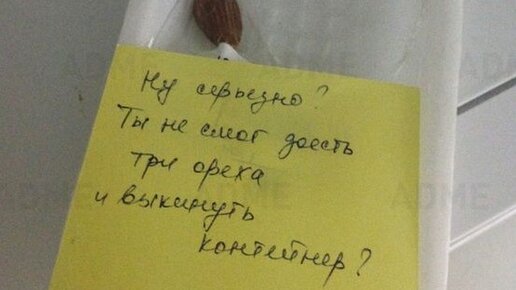 Ну серьезно?
Ты не смог доесть
три ореха
и выкинуть
контейнер?
ADME
ADME